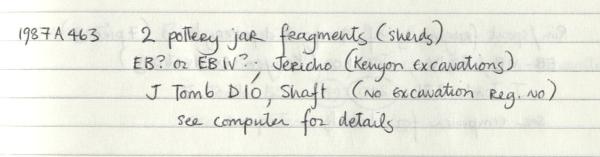 1987 A 463 2 pottery jar fragments (sherds)
EB? or EB IV? Jericho (Kenyon Excavations)
J Tomb D10, Shaft (No Excavation Reg. No)
see computer for details